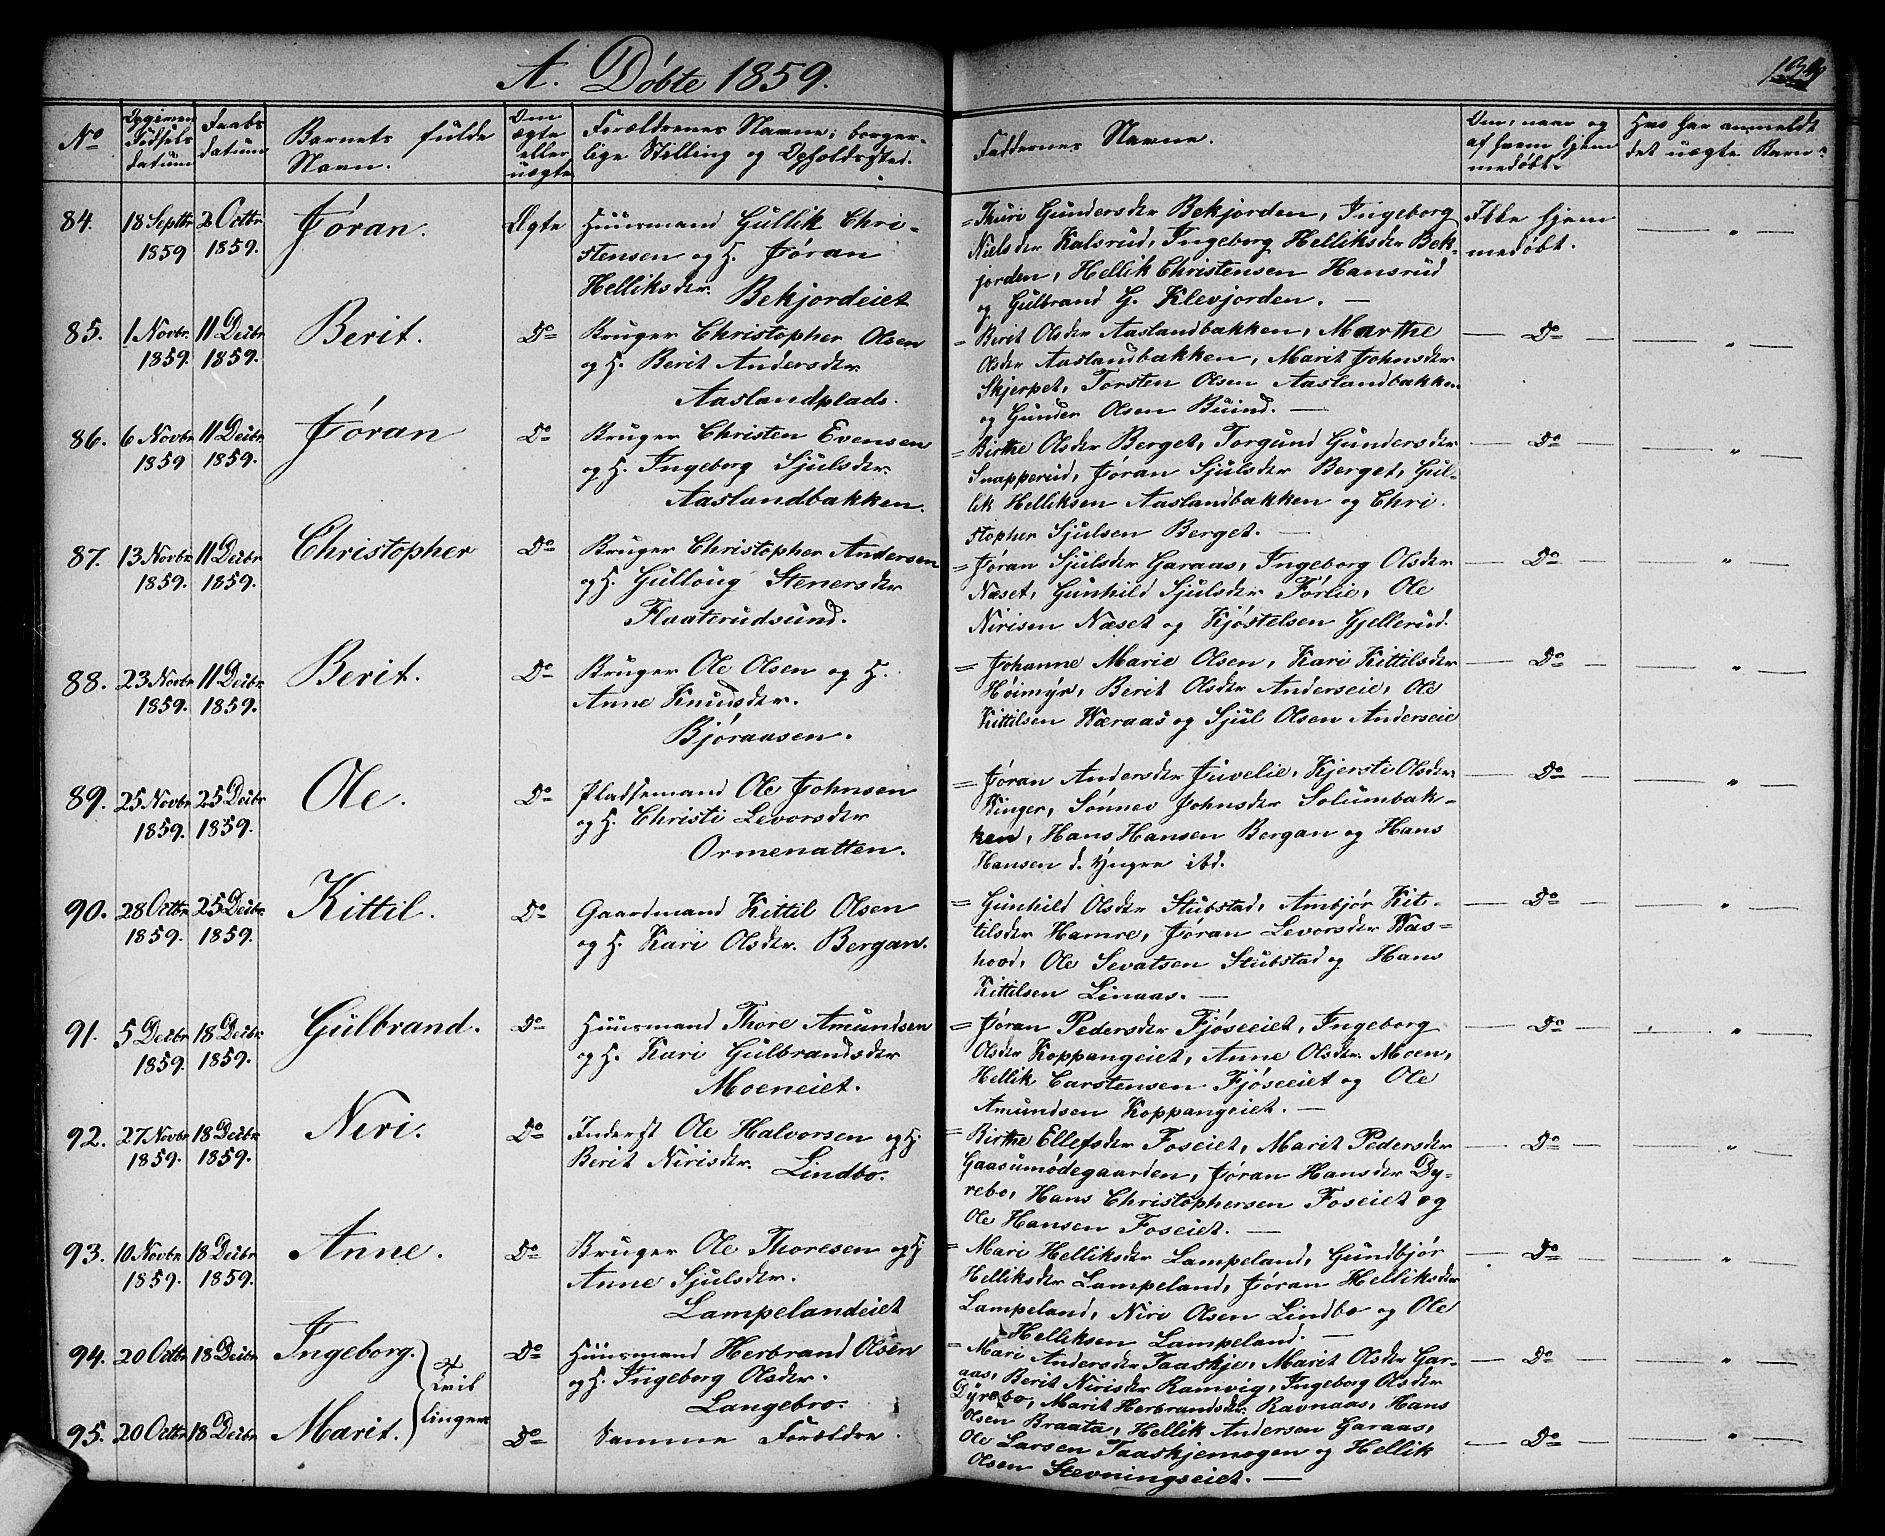 A. Døbte 1859.
No
Dagivven Fødsels datum
Daabs datum
Barnets fulde Navn.
Om ægte eller uægte
Forældrenes Navne, borgerlige Stilling og Opholdssted.
Faddernes Navne.
Om, naar og af hvem hjemmedøbt.
Hvo har anmeldt det uægte Barn
84. 18 Septbr 1859 2 Octbr 1859. Jøran. Ægte
Huusmand Gullik Chri-
stensen og H. Jøran
Helliksdr. Bekjordeiet
= Thuri Gundersdr Bekjorden, Ingeborg
Nielsdr Kalsrud, Ingeborg Helliksdr Bek-
jorden, Hellik Christensen Hansrud
og Gulbrand G. Klevjorden. —
Ikke hjem
medøbt.
— " —
85. 1 Novbr. 1859. 11 Decbr 1859. Berit. Do
Bruger Christopher Olsen
og H. Berit Andersdr.
Aaslandplads.
= Berit Olsdr Aaslandbakken, Marthe
Olsdr Aaslandbakken, Marit Johnsdr
Skjerpet, Torsten Olsen Aaslandbakken
og Gunder Olsen Buind. —
— Do —
— " —
86. 6 Novbr 1859 11 Decbr 1859. Jøran Do
Bruger Christen Evensen
og H. Ingeborg Sjulsdr.
Aaslandbakken.
= Birthe Olsdr Berget, Torgund Gundersdr
Snapperud, Jøran Sjulsdr Berget, Gul-
lik Helliksen Aaslandbakken og Chri.
stopher Sjulsen Berget. —
— Do —
— " —
87. 13 Novbr 1859. 11 Decbr 1859. Christopher Do
Bruger Christopher Andersen
og H. Gulloug Stenersdr
Flaaterudsund.
= Jøran Sjulsdr Garaas, Ingeborg Olsdr
Næset, Gunhild Sjulsdr Førlie, Ole
Nirisen Næset og Kjøstelsen Gjellerud.
— Do —
— " —
88. 23 Novbr 1859. 11 Decbr 1859. Berit. Do
Bruger Ole Olsen og H.
Anne Knudsdr.
Bjøraasen.
= Johanne Marie Olsen, Kari Kittilsdr
Høimyr, Berit Olsdr Anderseie, Ole
Kittilsen Wæraas og Sjul Olsen Anderseie
— Do —
— " —
89. 25 Novbr 1859. 25 Decbr 1859. Ole. Do
Pladsemand Ole Johnsen
og H. Christi Levorsdr
Ormenatten.
= Jøran Andersdr Juvelie, Kjersti Olsdr
Winger, Sønnev Johnsdr Solumbak-
ken, Hans Hansen Bergan og Hans
Hansen d. Yngre ibd.
— Do —
— " —
90. 28 Octbr 1859. 25 Decbr. 1859. Kittil. Do
Gaardmand Kittil Olsen
og H. Kari Olsdr. Bergan.
= Gunhild Olsdr Stubstad, Ambjør Kit-
tilsdr Hamre, Jøran Levorsdr Was-
hovd, Ole Sevatsen Stubstad og Hans
Kittilsen Linaas. —
— Do —
— " —
91. 5 Decbr 1859. 18 Decbr. 1859. Gulbrand. Do
Huusmand Thore Amundsen
og H. Kari Gulbrandsdr
Moeneiet.
= Jøran Pedersdr Fjøseeiet, Ingeborg
Olsdr Koppangeiet, Anne Olsdr. Moen,
Hellik Carstensen Fjøseeiet og Ole
Amundsen Koppangeiet. —
— Do —
— " —
92. 27 Novbr 1859. 18 Decbr. 1859. Neri. Do
Inderst Ole Halvorsen og H.
Berit Nirisdr. Lindbo.
= Birthe Ellefsdr Foseiet, Marit Pedersdr
Gaasumødegaarden, Jøran Hansdr Dy-
rebo, Hans Christophersen Foseiet og
Ole Hansen Foseiet. —
— Do —
— " —
93. 10 Novbr. 1859. 18 Decbr 1859. Anne. Do
Bruger Ole Thoresen og H
Anne Sjulsdr.
Lampelandeiet
= Mari Helliksdr Lampeland, Gundbjør
Helliksdr Lampeland, Jøran Helliksdr
Lampeland, Niri Olsen Lindbo og Ole
Helliksen Lampeland. —
— Do —
— " —
94. 20 Octbr 18 Decbr Ingeborg. Tvil Do
Huusmand Herbrand Olsen
og H. Ingeborg Olsdr.
Langebro.
= Mari Andersdr Taaskje, Marit Olsdr Gar-
aas, Berit Nirisdr Ramvig, Ingeborg Olsdr
Dyrebo, Marit Herbrandsdr. Ravnaas, Hans
Olsen Braata, Hellik Andersen Garaas,
Ole Larsen Taaskjemogen og Hellik
Olsen Stevningseiet. —
— Do —
— " —
95. 20 Octbr 18 Decbr Marit. linger Do
Samme Forældre.
— Do —
— " —